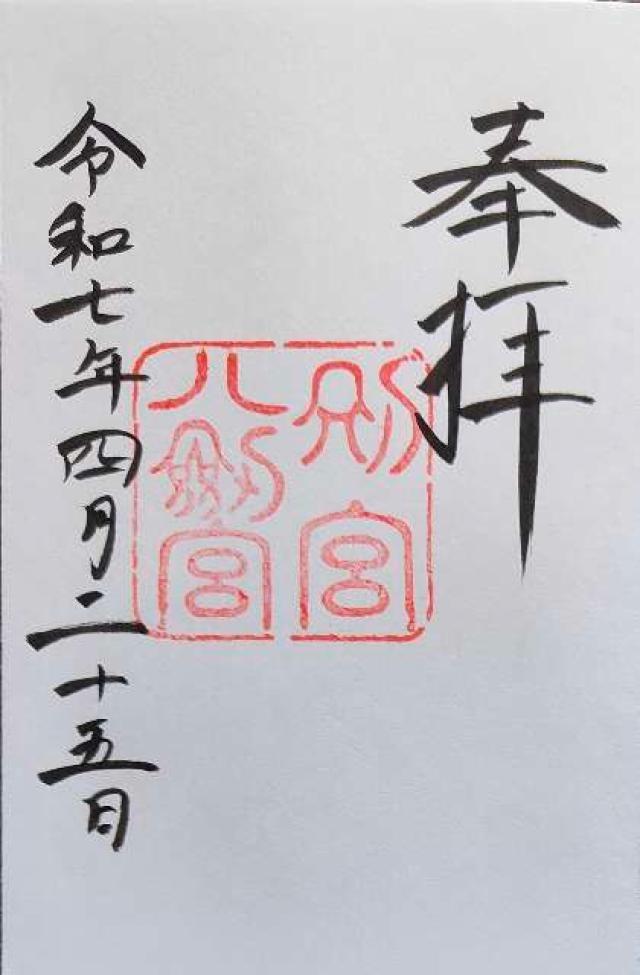 奉拝
別宮
八剣宮
令和七年四月二十五日